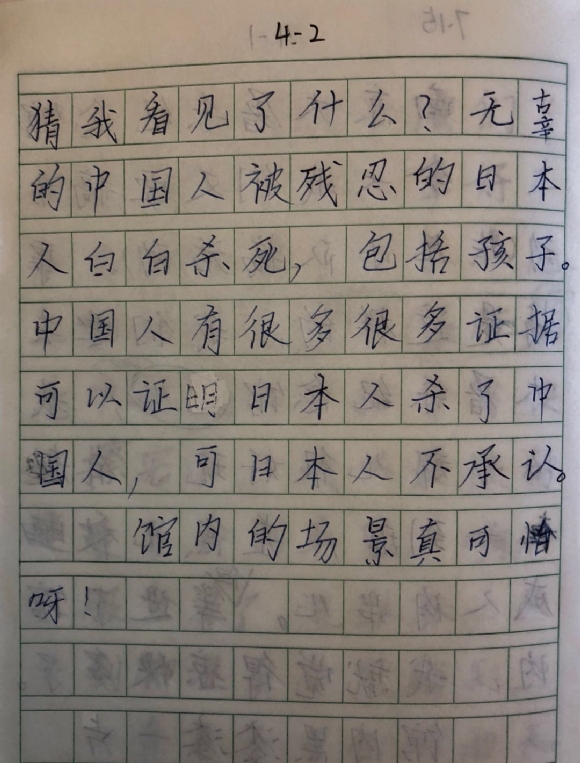 4-2
猜我看见了什么？无辜
的中国人被残忍的日本
人白白杀死，包括孩子。
中国人有很多很多证据
可以证明日本人杀了中
国人，可日本人不承认。
馆内的场景真可怕
呀！